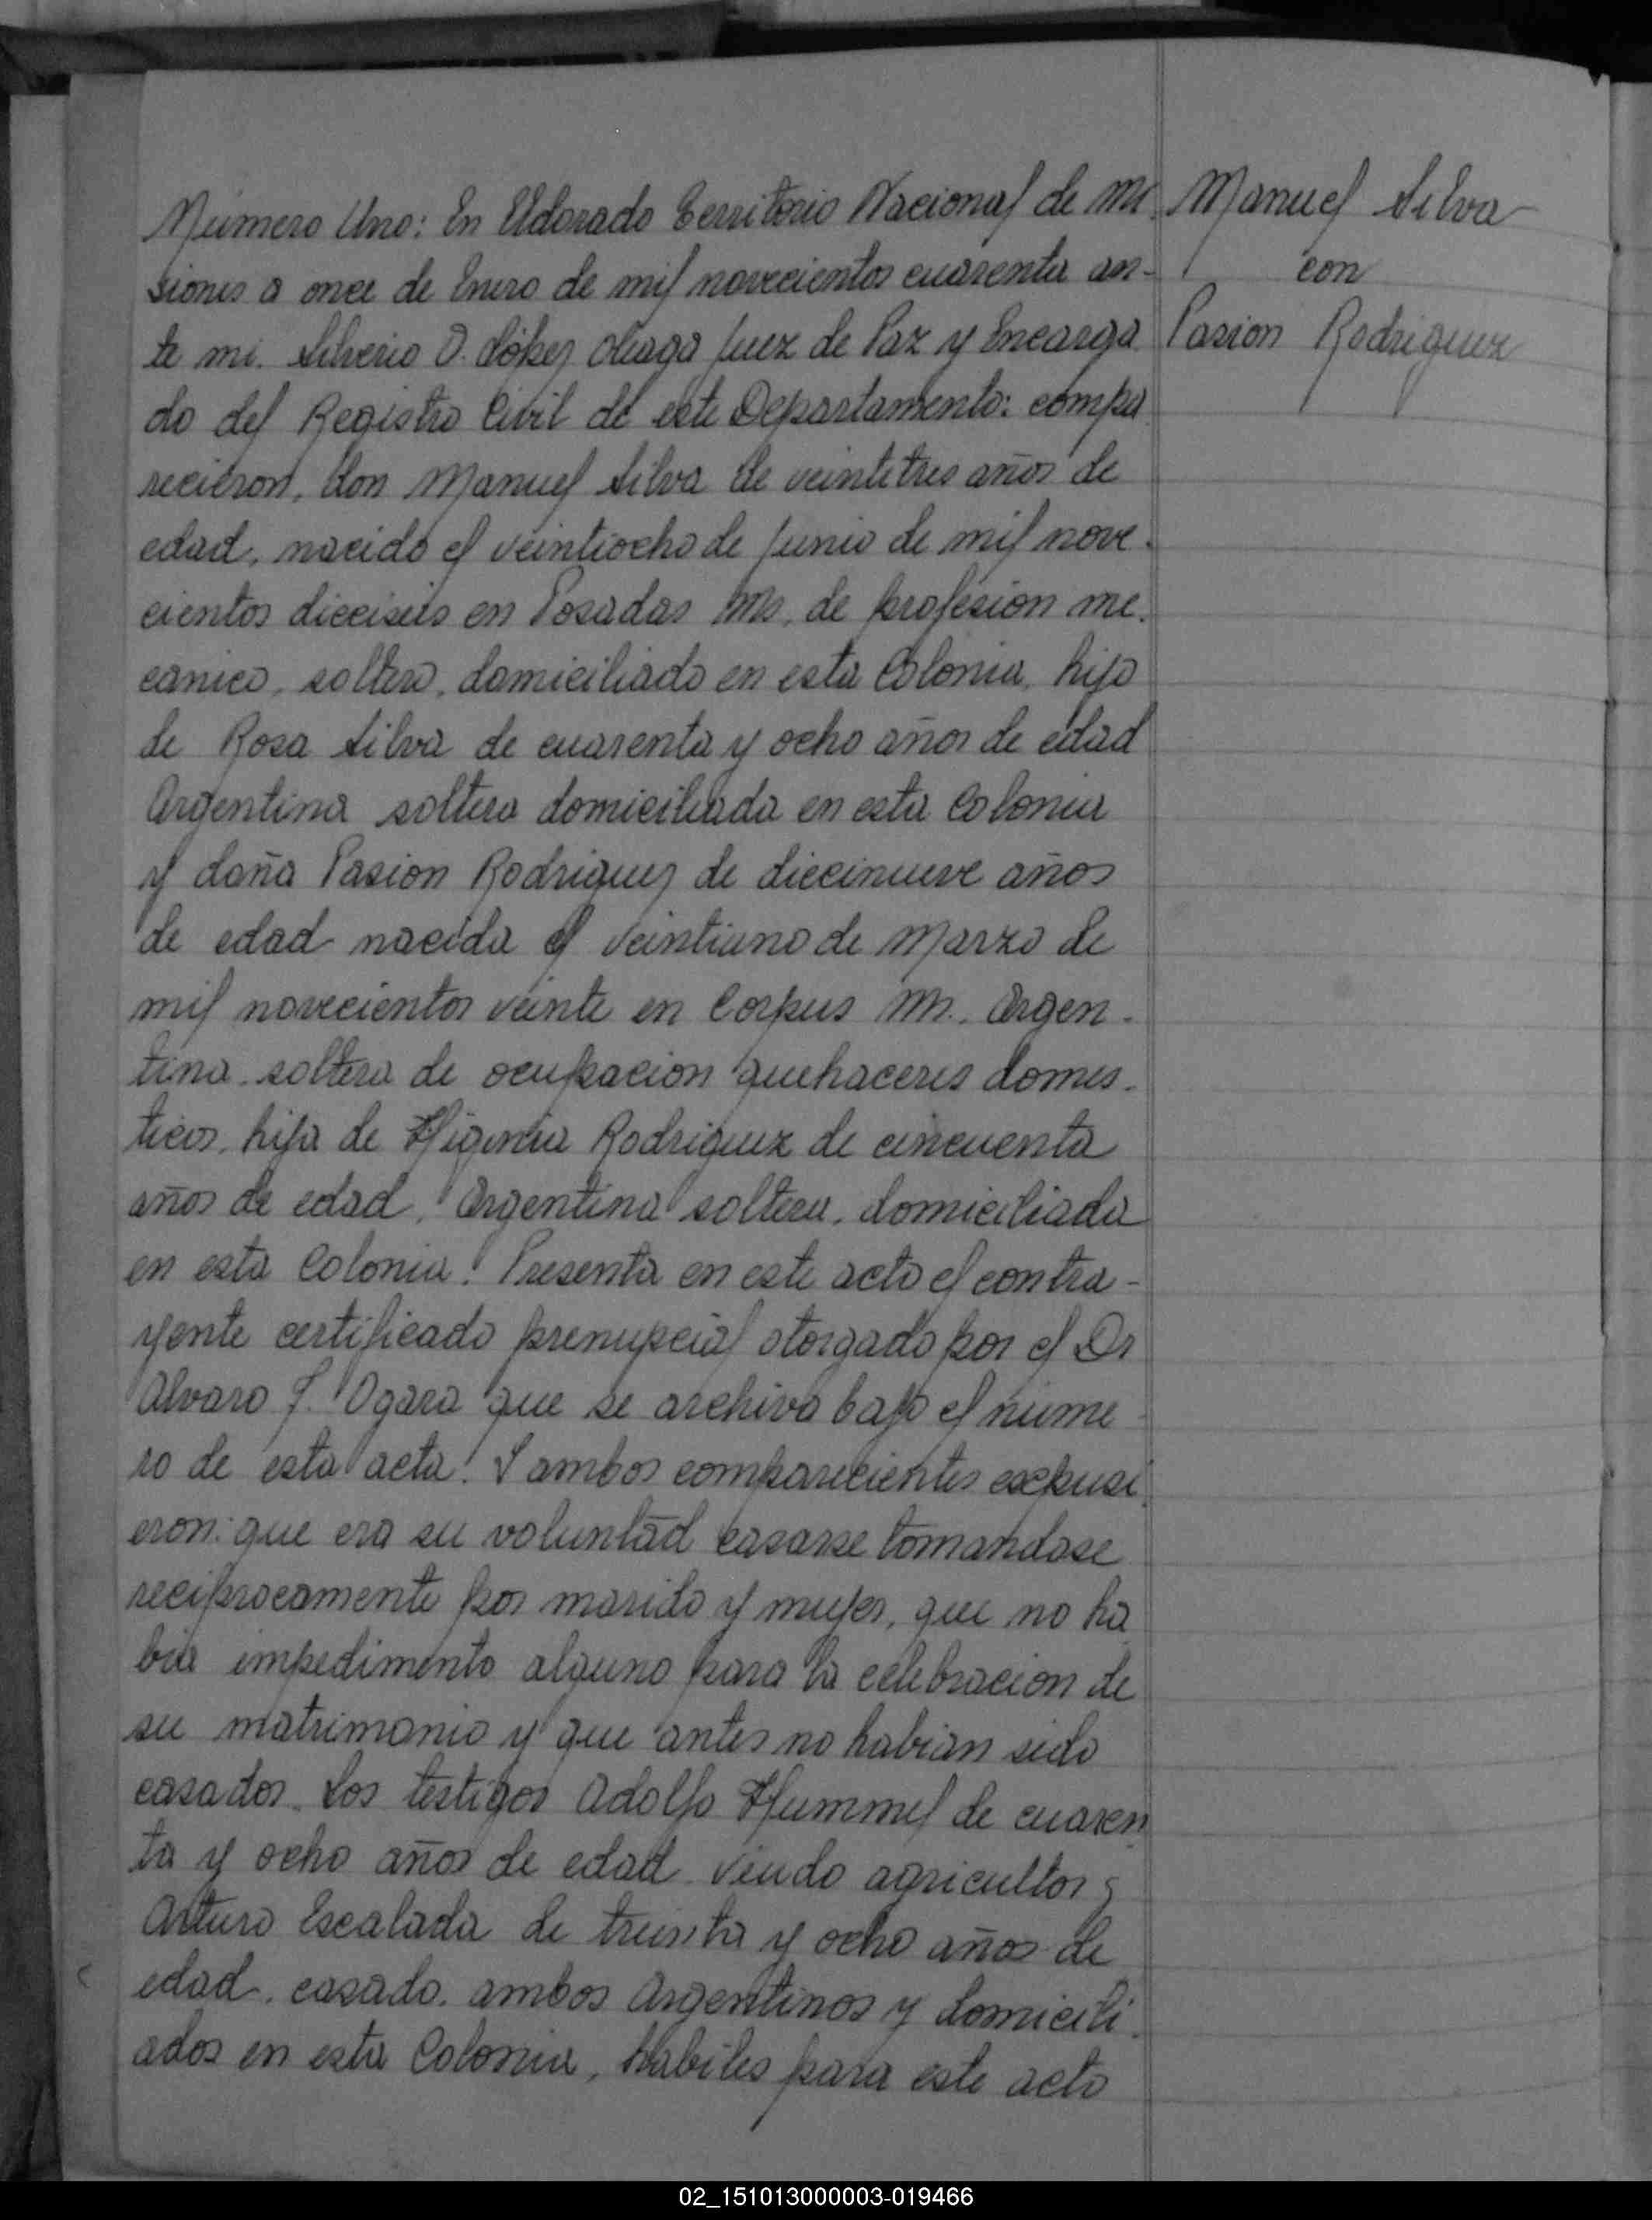 Número Uno: En Eldorado Territorio Nacional de Mi
siones a once de Enero de mil novecientos cuarenta an-
te mi. Silverio O. López Juez de Paz y Encarga
do del Registro Civil de este Departamento: compa
recieron, don Manuel Silva de veintetres años de
edad, nacido el veintiocho de Junio de mil nove-
cientos dieciseis en Posadas Ms. de profesion me-
canico, soltero, domiciliado en esta Colonia, hijo
de Rosa Silva de cuarenta y ocho años de edad
Argentina soltera domiciliada en esta Colonia
y doña Pasion Rodriguez de diecinueve años
de edad nacida el veintiuno de Marzo de
mil novecientos veinte en Corpus Ms. Argen-
tina. soltera de ocupacion quehaceres domes-
ticos, hija de Rodriguez de cincuenta
años de edad, Argentina soltera, domiciliada
en esta Colonia. Presenta en este acto el contra-
yente certificado prenupcial otorgado por el Dr
Alvaro J. Ogara que se archiva bajo el nume-
ro de esta acta. Y ambos comparecientes expusi
eron: que era su voluntad casarse tomandose
reciprocamente por marido y mujer, que no ha
bia impedimento alguno para la celebracion de
su matrimonio y que antes no habian sido
casados. Los testigos Adolfo Hummel de cuaren
ta y ocho años de edad viudo agricultor y
Arturo Escalada de treinta y ocho años de
edad. casado. ambos Argentinos y domicili-
ados en esta Colonia, habiles para este acto
Manuel Silva
con
Pasion Rodriguez
02_151013000003-019466